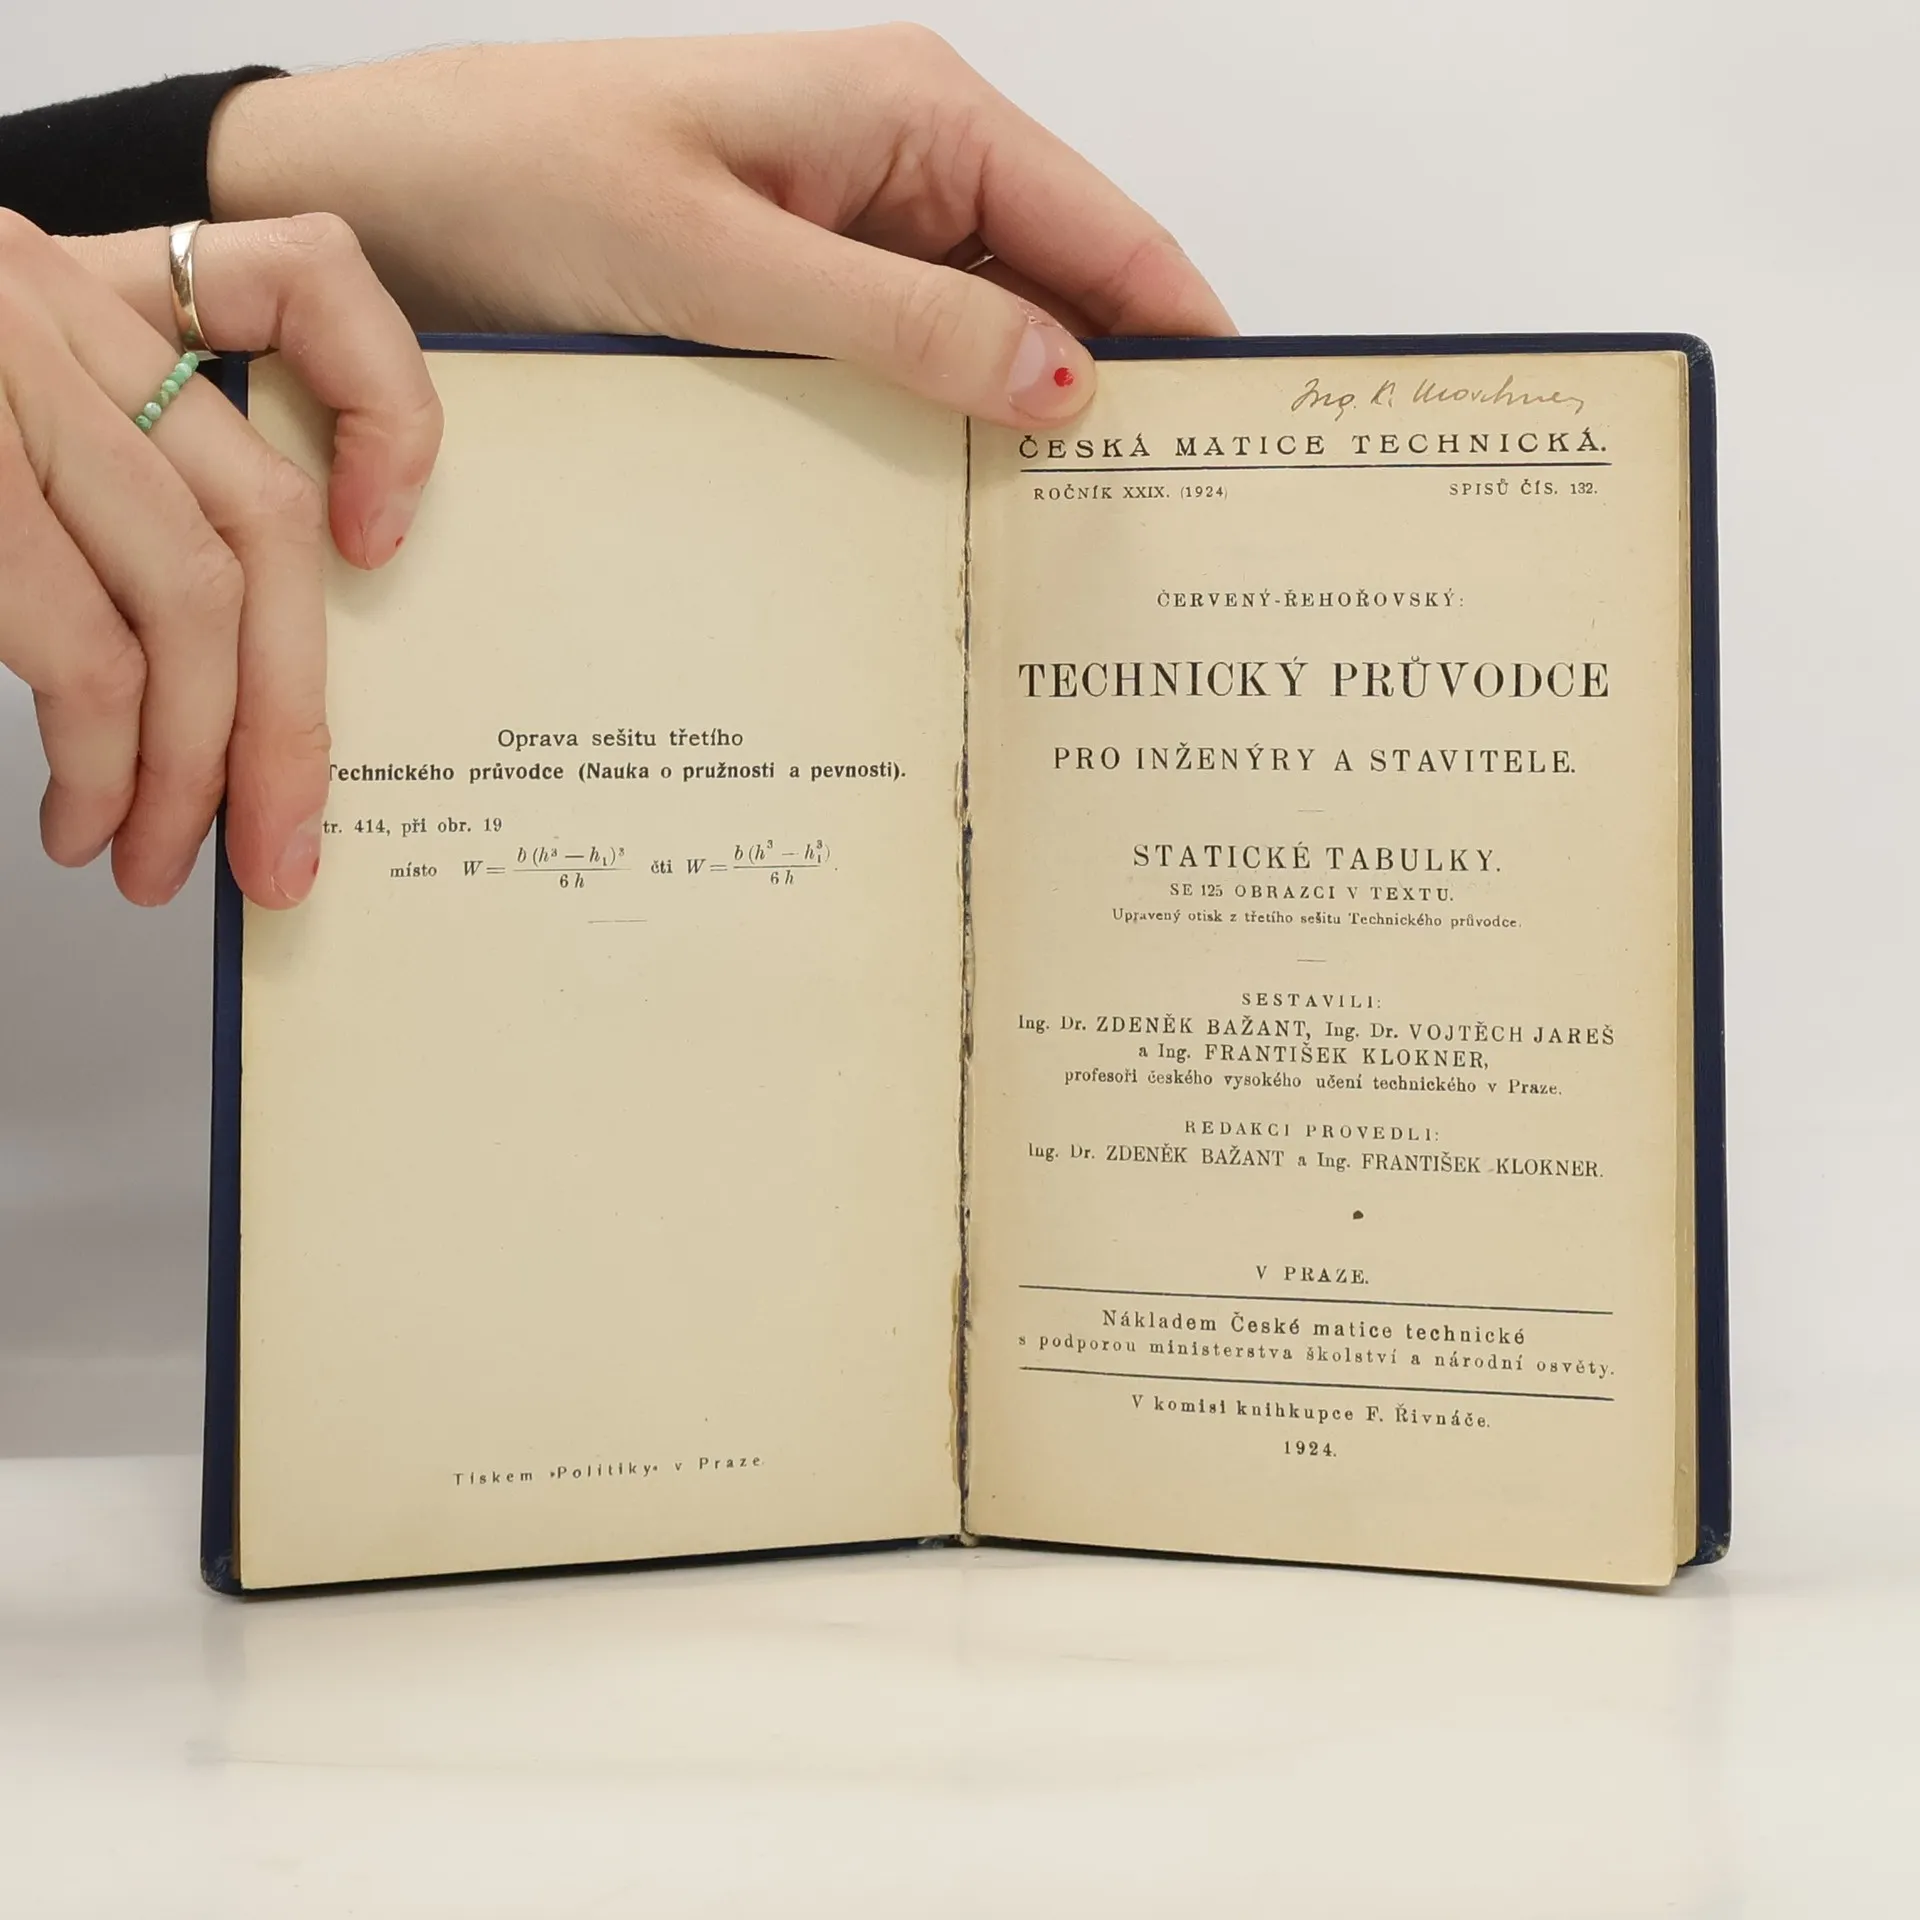 Oprava sešitu třetího
Technického průvodce (Nauka o pružnosti a pevnosti).
tr. 414, při obr. 19
místo W = b (h³ — h₁)³ / 6 h čti W = b (h³ — h₁³) / 6 h.
Tiskem »Politiky« v Praze.
Ing. K.
ČESKÁ MATICE TECHNICKÁ.
ROČNÍK XXIX. (1924) SPISŮ ČÍS. 132.
ČERVENÝ-ŘEHOŘOVSKÝ:
TECHNICKÝ PRŮVODCE
PRO INŽENÝRY A STAVITELE.
STATICKÉ TABULKY.
SE 125 OBRAZCI V TEXTU.
Upravený otisk z třetího sešitu Technického průvodce.
SESTAVILI:
Ing. Dr. ZDENĚK BAŽANT, Ing. Dr. VOJTĚCH JAREŠ
a Ing. FRANTIŠEK KLOKNER,
profesoři českého vysokého učení technického v Praze.
REDAKCI PROVEDLI:
Ing. Dr. ZDENĚK BAŽANT a Ing. FRANTIŠEK KLOKNER.
V PRAZE.
Nákladem České matice technické
s podporou ministerstva školství a národní osvěty.
V komisi knihkupce F. Řivnáče.
1924.